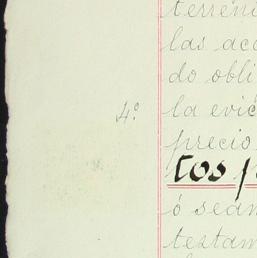 terreno
las acc
do obli
4.º
la evic
precio
tos p
ó sean
testam